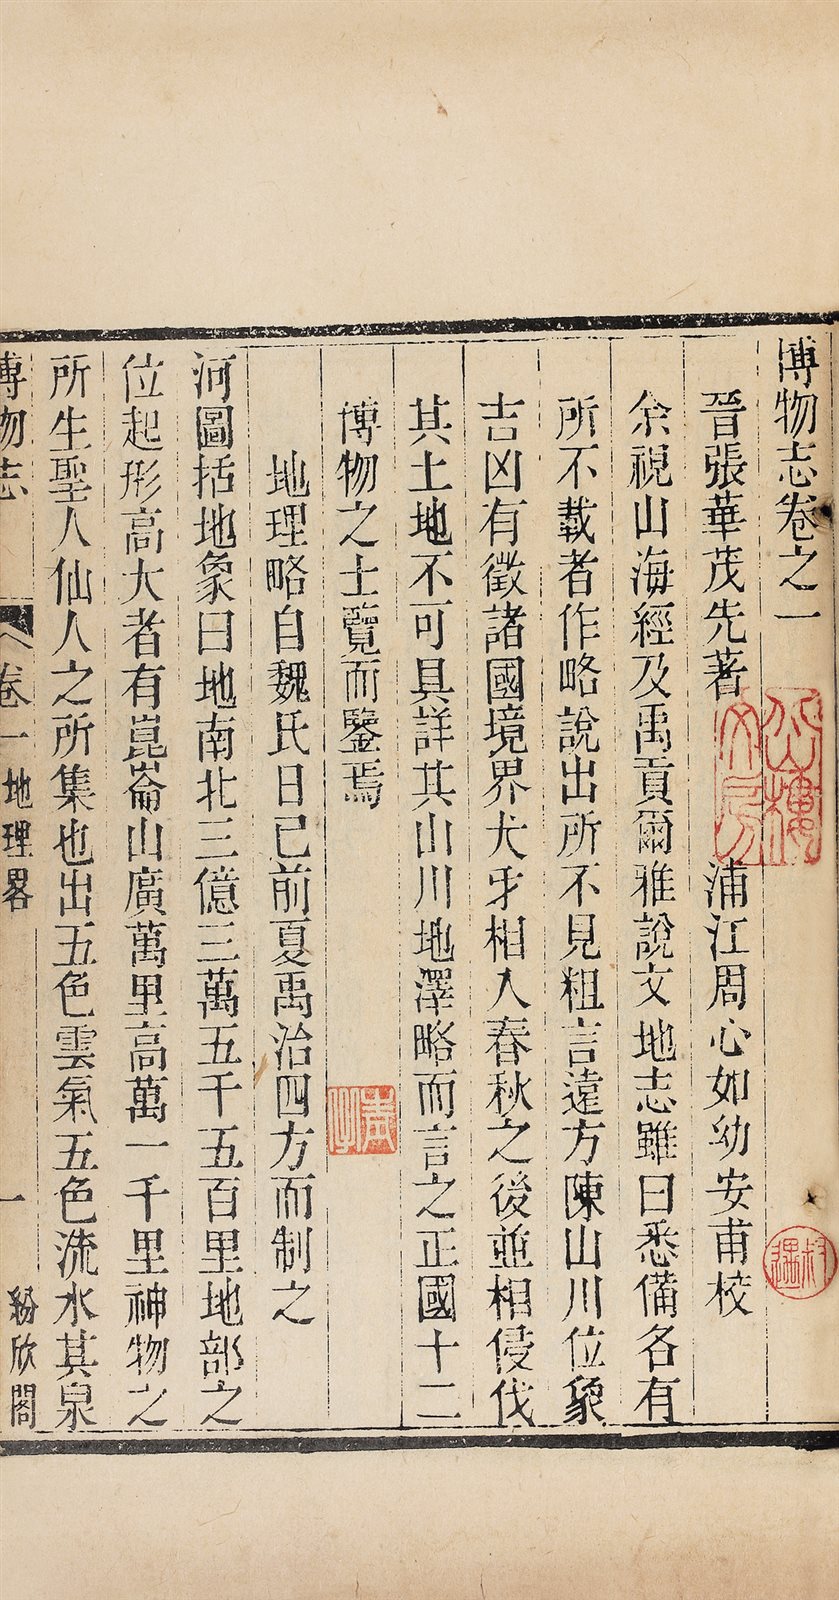 博物志卷之一
晉張華茂先著 浦江周心如幼安甫校
余視山海經及禹貢爾雅說文地志雖曰悉備各有
所不載者作略說出所不見粗言遠方陳山川位象
吉凶有徵諸國境界犬牙相入春秋之後並相侵伐
其土地不可具詳其山川地澤略而言之正國十二
博物之士覽而鑒焉
地理略自魏氏日已前夏禹治四方而制之
河圖括地象曰地南北三億三萬五千五百里地部之
位起形高大者有崑崙山廣萬里高萬一千里神物之
所生聖人仙人之所集也出五色雲氣五色流水其泉
博物志 卷一 地理畧 一 紛欣閣